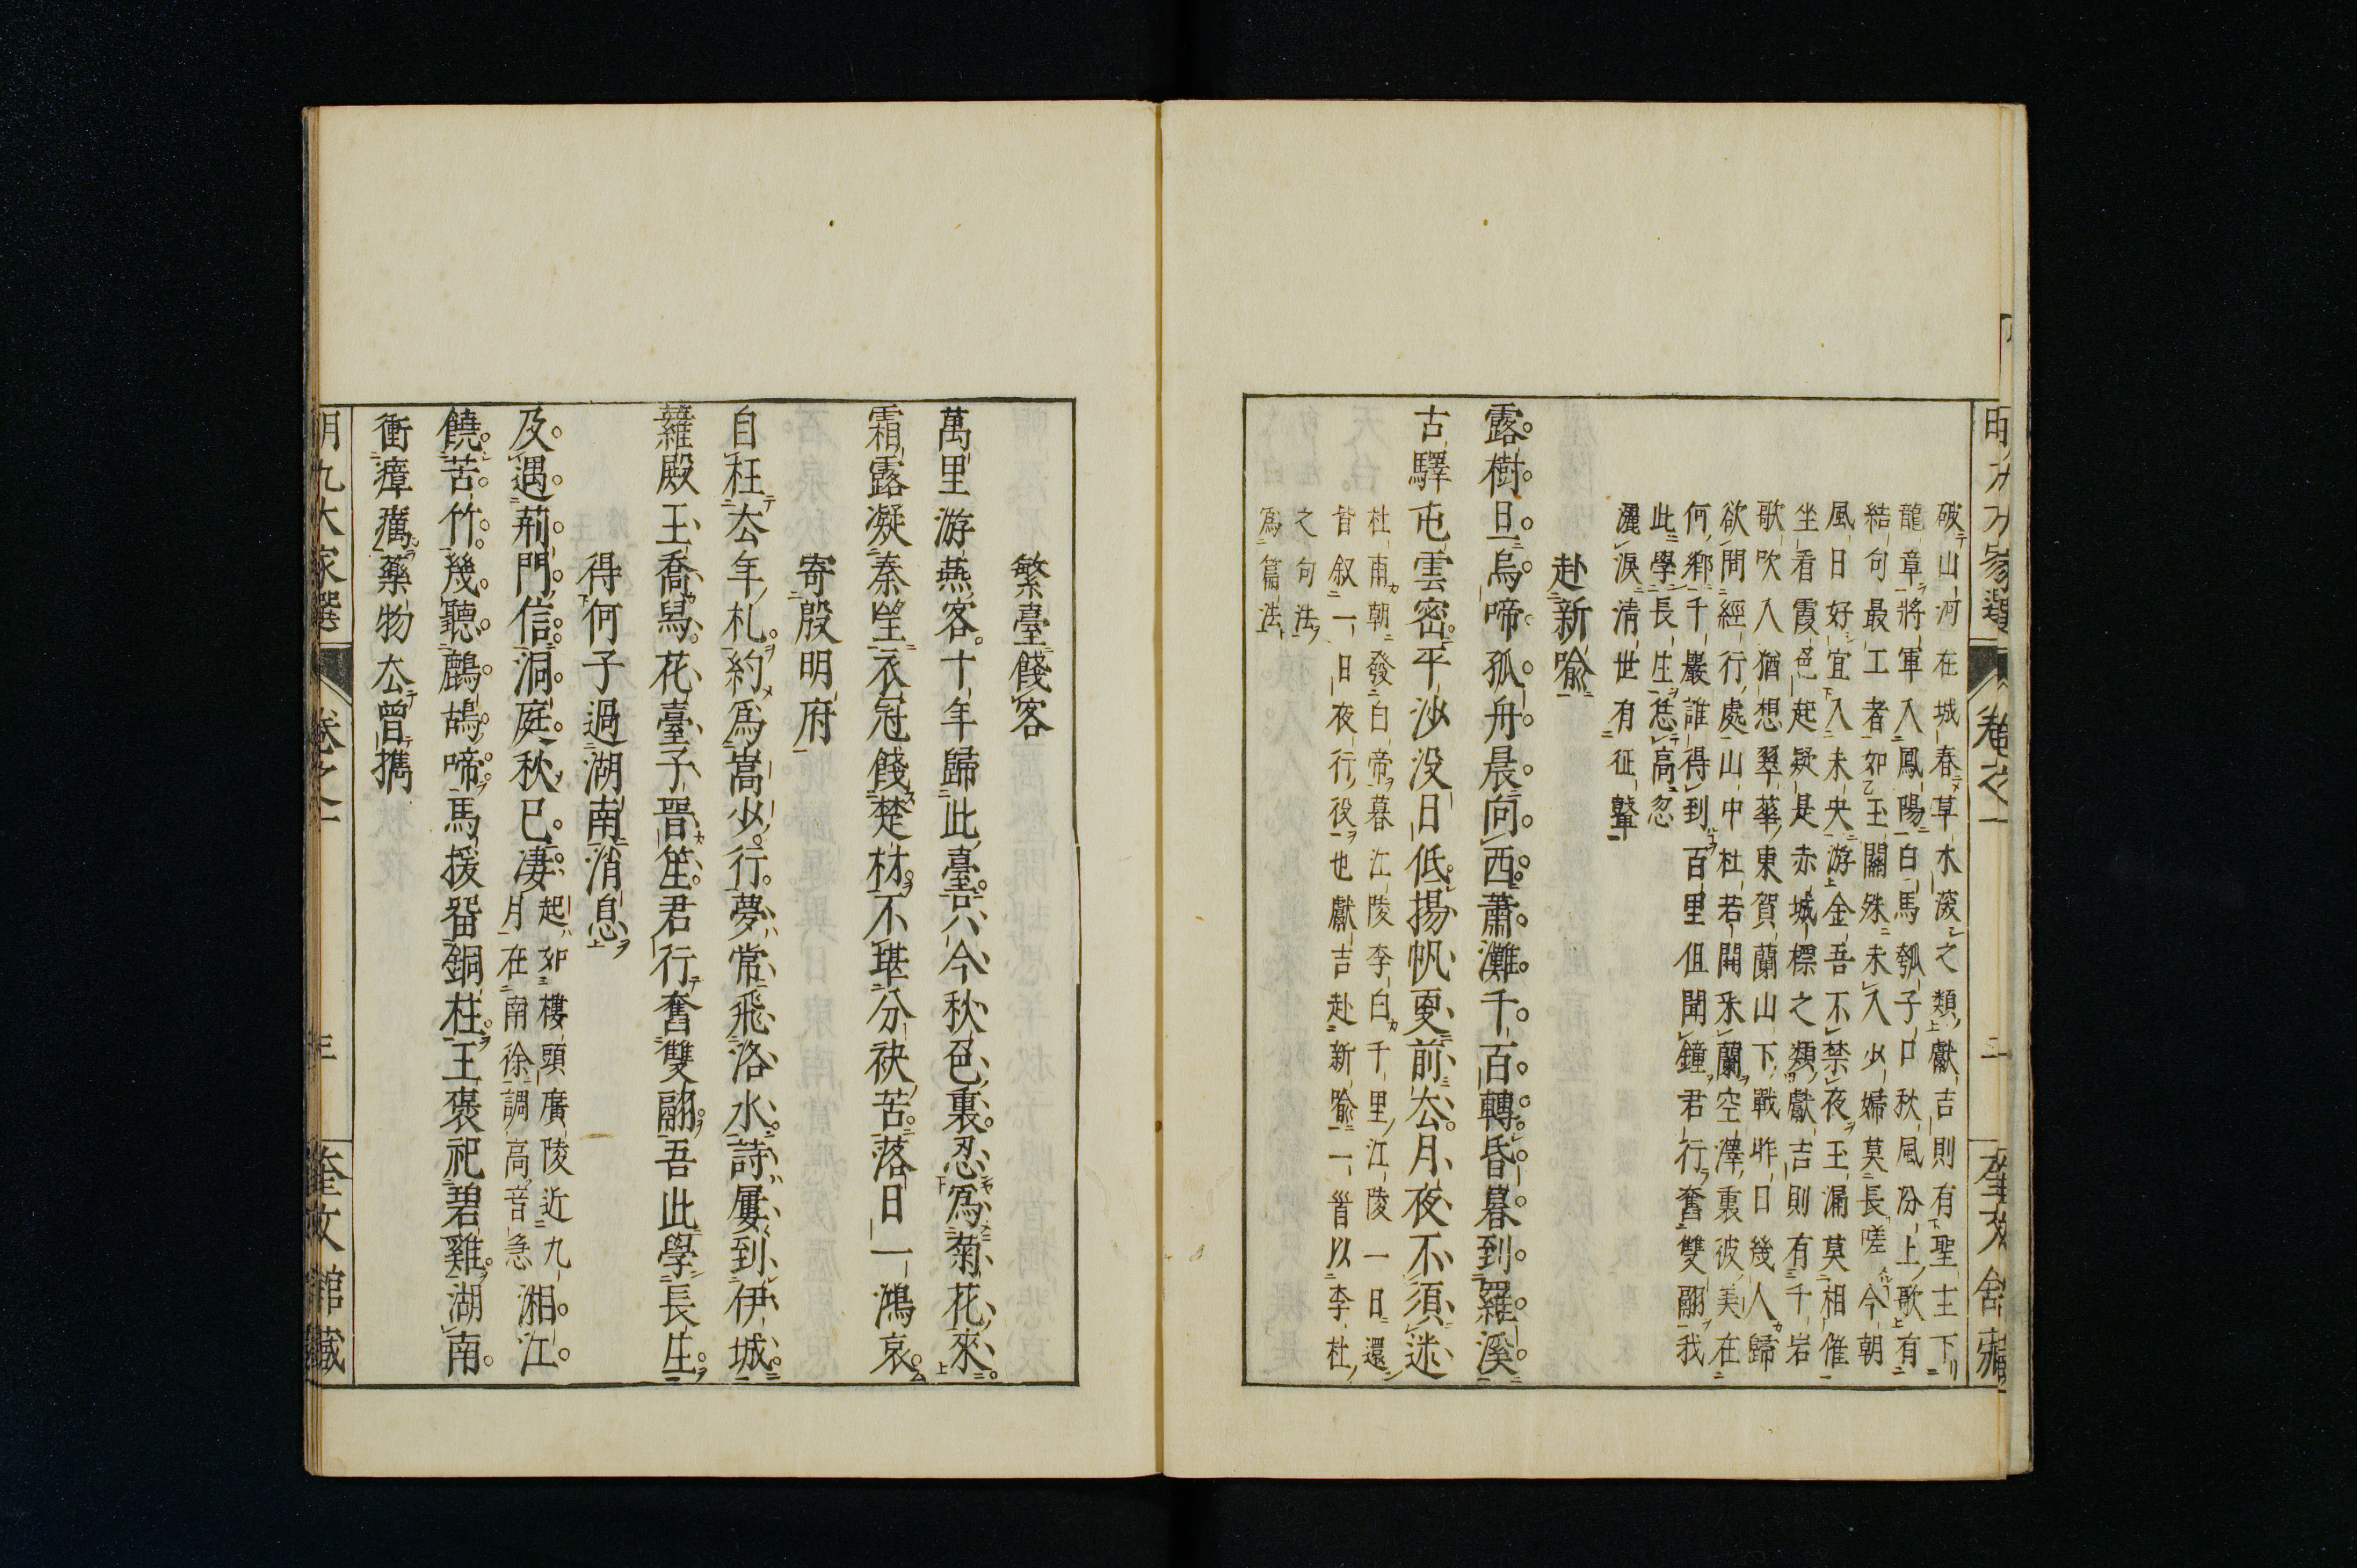 破山河在城春草木深之類獻吉則有聖主下
龍章將軍入鳳陽白馬瓠子口秋風汾上歌有
結句最工者如玉關殊未入少婦莫長嗟今朝
風日好宜入未央游金吾不禁夜玉漏莫相催
坐看霞色起疑是赤城標之類獻吉則有千岩
歌吹入猶想翠華東賀蘭山下戰昨日幾人歸
欲問經行處山中杜若開采蘭空澤裏彼美在
何鄉千巖誰得到百里但聞鐘君行奮雙翮我
此學長生恁高忽
灑淚清世有征鼙
赴新喻
露樹日烏啼孤舟晨向西蕭灘千百轉昏暮到羅溪
古驛屯雲密平沙没日低揚帆更前厺月夜不須迷
杜甫朝發白帝暮江陵李白千里江陵一日還
皆叙一日夜行役也獻吉赴新喻一首以李杜
之句法
爲篇法
繁臺餞客
萬里游燕客十年歸此臺只今秋色裏忍爲菊花來
霜露凝秦望衣冠餞楚材不堪分袂苦落日一鴻哀
寄殷明府
自枉厺年札約爲嵩少行夢常飛洛水詩屢到伊城
蘿殿王喬舄花臺子晉笙君行奮雙翮吾此學長生
得何子過湖南消息
及遇荊門信洞庭秋已凄起如樓頭廣陵近九月在南徐調高音急湘江
饒苦竹幾聽鷓鴣啼馬援留銅柱王褒祀碧雞湖南
衝瘴癘藥物厺曾擕
明九大家選
卷之一
奎文館藏